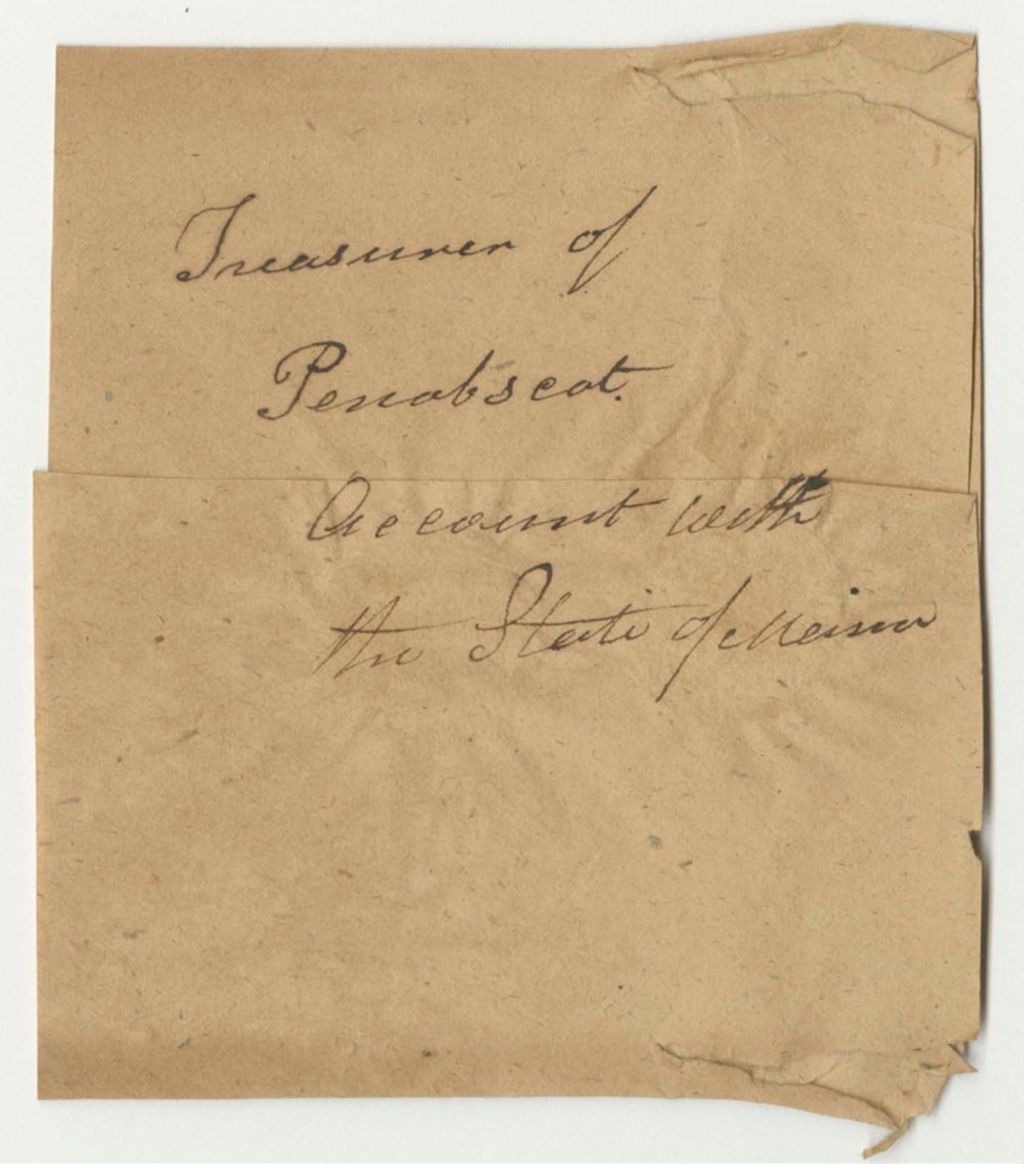 Treasurer of
Penobscot.
Account with
the State of Maine